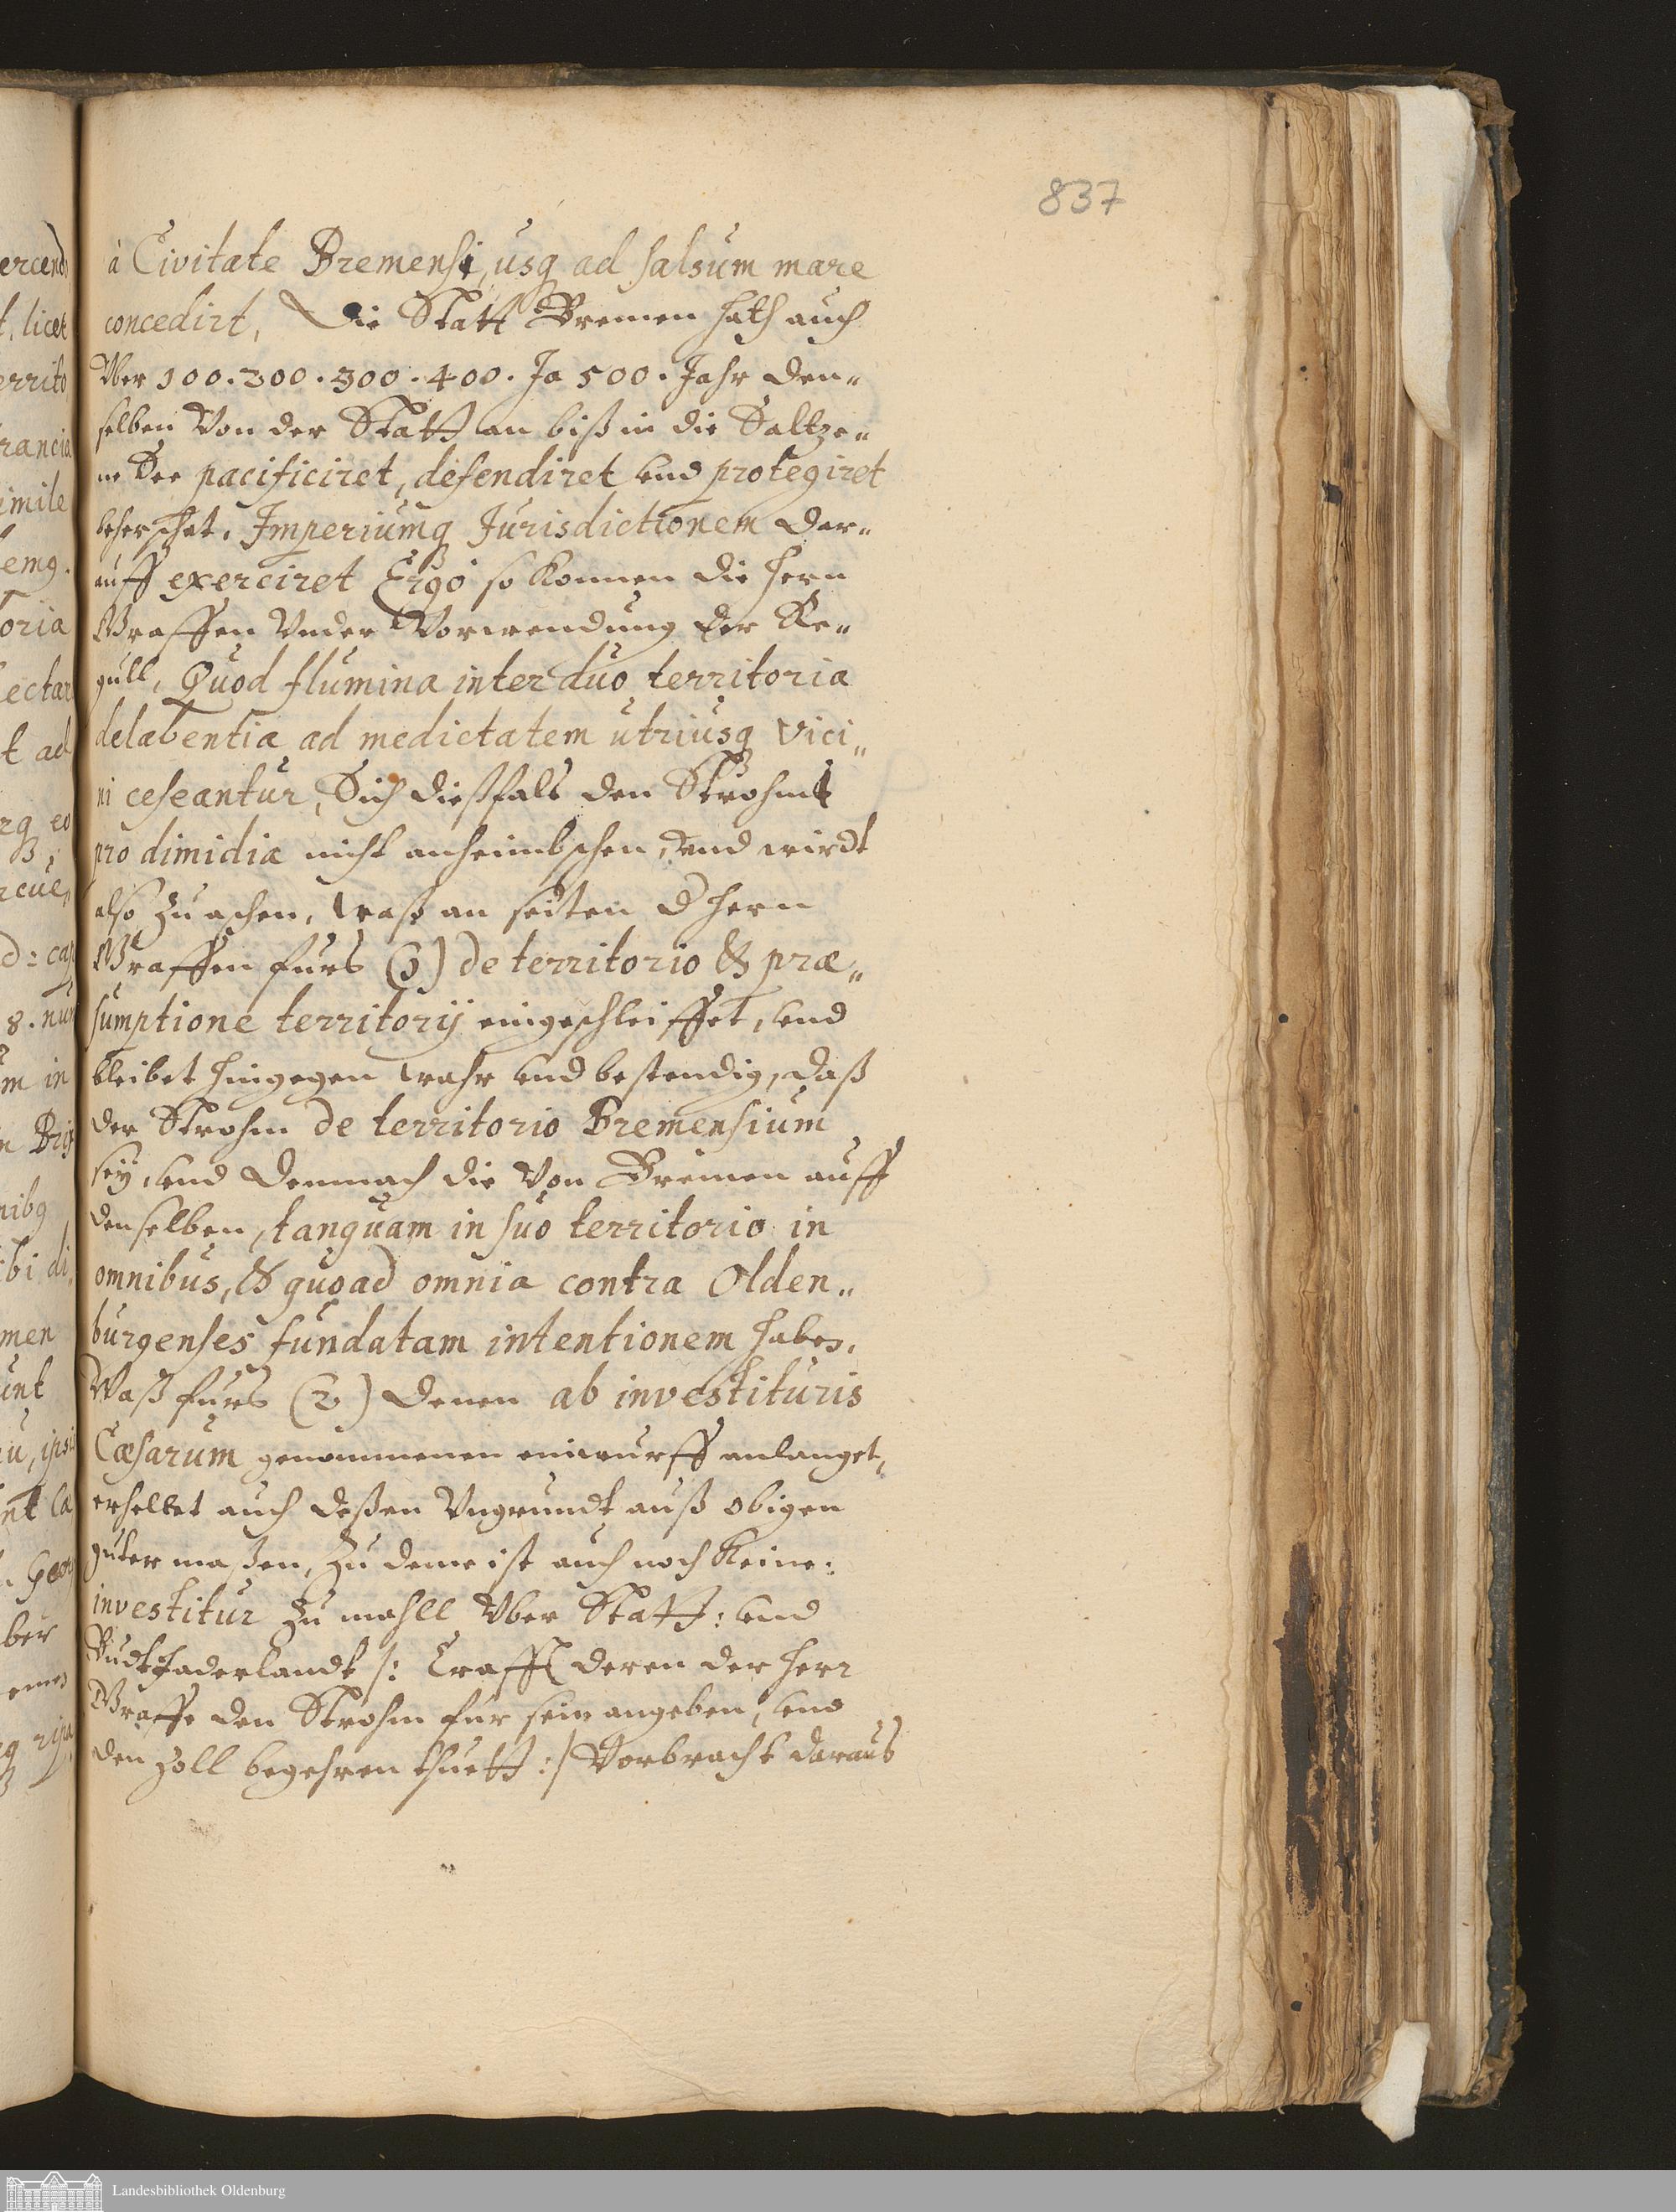 837
à Civitate Bremensi, usq ad salsum mare
concedirt, Die Statt Bremen hath auch
Vber 100. 200. 300. 400. Ja 500. Jahr den„
selben Von der Statt an biß in die Saltze„
ne See pacificiret, defendiret und protegiret
beherschet. Imperiumq Jurisdictionem dar„
auff exerciret Ergò so konnen die hern
Graffen Vnder Vorwendung der Re„
gull, Quod flumina inter duo territoria
delabentia ad medietatem utriusq vici„
ni ceseantur, Sich dießfals den Strohmb
pro dimidia nicht anheimbschen, und wirdt
also Zu aschen, waß an seiten d hern
Graffen furs (1) de territorio & præ„
sumptione territorij eingeschleiffet, und
bleibet hingegen wahr und bestendig, daß
der Strohm de territorio Bremensium
sey, und demnach die Von Bremen auff
denselben, tanquam in suo territorio in
omnibus, & quoad omnia contra Olden„
burgenses fundatam intentionem haben.
Waß furs (2) denen ab investituris
Cæsarum genommenen einwurff anlanget,
erhellet auch deßen Vngrundt auß obigen
guter maßen, Zu deme ist auch noch keine
investitur Zu mahll Vber Statt: und
Butjaderlandt /: Crafft deren der herr
Graffe den Strohm fur sein angeben, und
den Zoll begehren thuett :/ Vorbracht daraus
Landesbibliothek Oldenburg